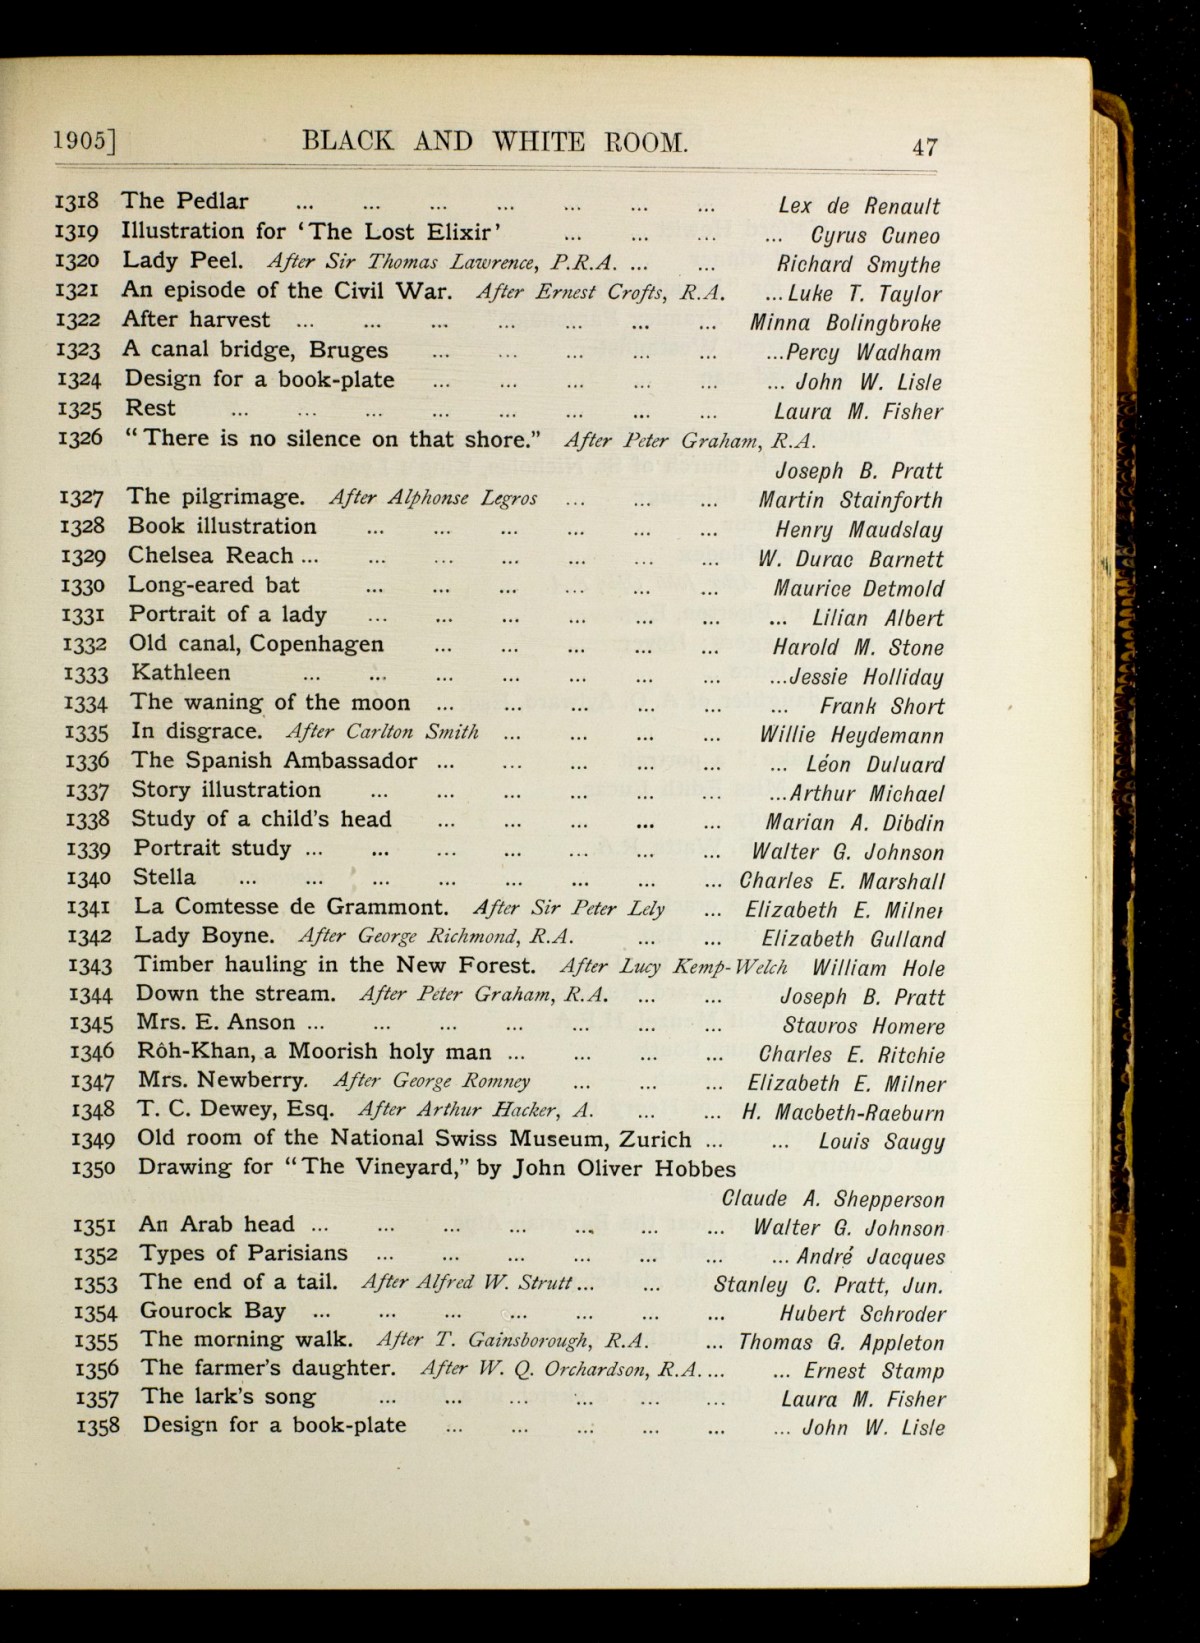 1905] BLACK AND WHITE ROOM. 47
1318 The Pedlar ... ... ... ... ... ... ... Lex de Renault
1319 Illustration for ‘The Lost Elixir’ ... ... ... ... Cyrus Cuneo
1320 Lady Peel. After Sir Thomas Lawrence, P.R.A. ... ... Richard Smythe
1321 An episode of the Civil War. After Ernest Crofts, R.A. ...Luke T. Taylor
1322 After harvest ... ... ... ... ... ... ... Minna Bolingbroke
1323 A canal bridge, Bruges ... ... ... ... ... ...Percy Wadham
1324 Design for a book-plate ... ... ... ... ... ... John W. Lisle
1325 Rest ... ... ... ... ... ... ... ... Laura M. Fisher
1326 “There is no silence on that shore.” After Peter Graham, R.A.
Joseph B. Pratt
1327 The pilgrimage. After Alphonse Legros ... ... ... Martin Stainforth
1328 Book illustration ... ... ... ... ... ... Henry Maudslay
1329 Chelsea Reach ... ... ... ... ... ... ... W. Durac Barnett
1330 Long-eared bat ... ... ... ... ... ... Maurice Detmold
1331 Portrait of a lady ... ... ... ... ... ... ... Lilian Albert
1332 Old canal, Copenhagen ... ... ... ... ... Harold M. Stone
1333 Kathleen ... ... ... ... ... ... ... ...Jessie Holliday
1334 The waning of the moon ... ... ... ... ... ... Frank Short
1335 In disgrace. After Carlton Smith ... ... ... ... Willie Heydemann
1336 The Spanish Ambassador ... ... ... ... ... ... Léon Duluard
1337 Story illustration ... ... ... ... ... ... ...Arthur Michael
1338 Study of a child’s head ... ... ... ... ... Marian A. Dibdin
1339 Portrait study ... ... ... ... ... ... ... Walter G. Johnson
1340 Stella ... ... ... ... ... ... ... ... Charles E. Marshall
1341 La Comtesse de Grammont. After Sir Peter Lely ... Elizabeth E. Milner
1342 Lady Boyne. After George Richmond, R.A. ... ... Elizabeth Gulland
1343 Timber hauling in the New Forest. After Lucy Kemp-Welch William Hole
1344 Down the stream. After Peter Graham, R.A. ... ... Joseph B. Pratt
1345 Mrs. E. Anson ... ... ... ... ... ... ... Stavros Homere
1346 Rôh-Khan, a Moorish holy man ... ... ... ... Charles E. Ritchie
1347 Mrs. Newberry. After George Romney ... ... ... Elizabeth E. Milner
1348 T. C. Dewey, Esq. After Arthur Hacker, A. ... ... H. Macbeth-Raeburn
1349 Old room of the National Swiss Museum, Zurich ... ... Louis Saugy
1350 Drawing for “The Vineyard,” by John Oliver Hobbes
Claude A. Shepperson
1351 An Arab head ... ... ... ... ... ... ... Walter G. Johnson
1352 Types of Parisians ... ... ... ... ... ... ... André Jacques
1353 The end of a tail. After Alfred W. Strutt ... ... Stanley C. Pratt, Jun.
1354 Gourock Bay ... ... ... ... ... ... ... Hubert Schroder
1355 The morning walk. After T. Gainsborough, R.A. ... Thomas G. Appleton
1356 The farmer’s daughter. After W. Q. Orchardson, R.A. ... ... Ernest Stamp
1357 The lark’s song ... ... ... ... ... ... Laura M. Fisher
1358 Design for a book-plate ... ... ... ... ... ... John W. Lisle